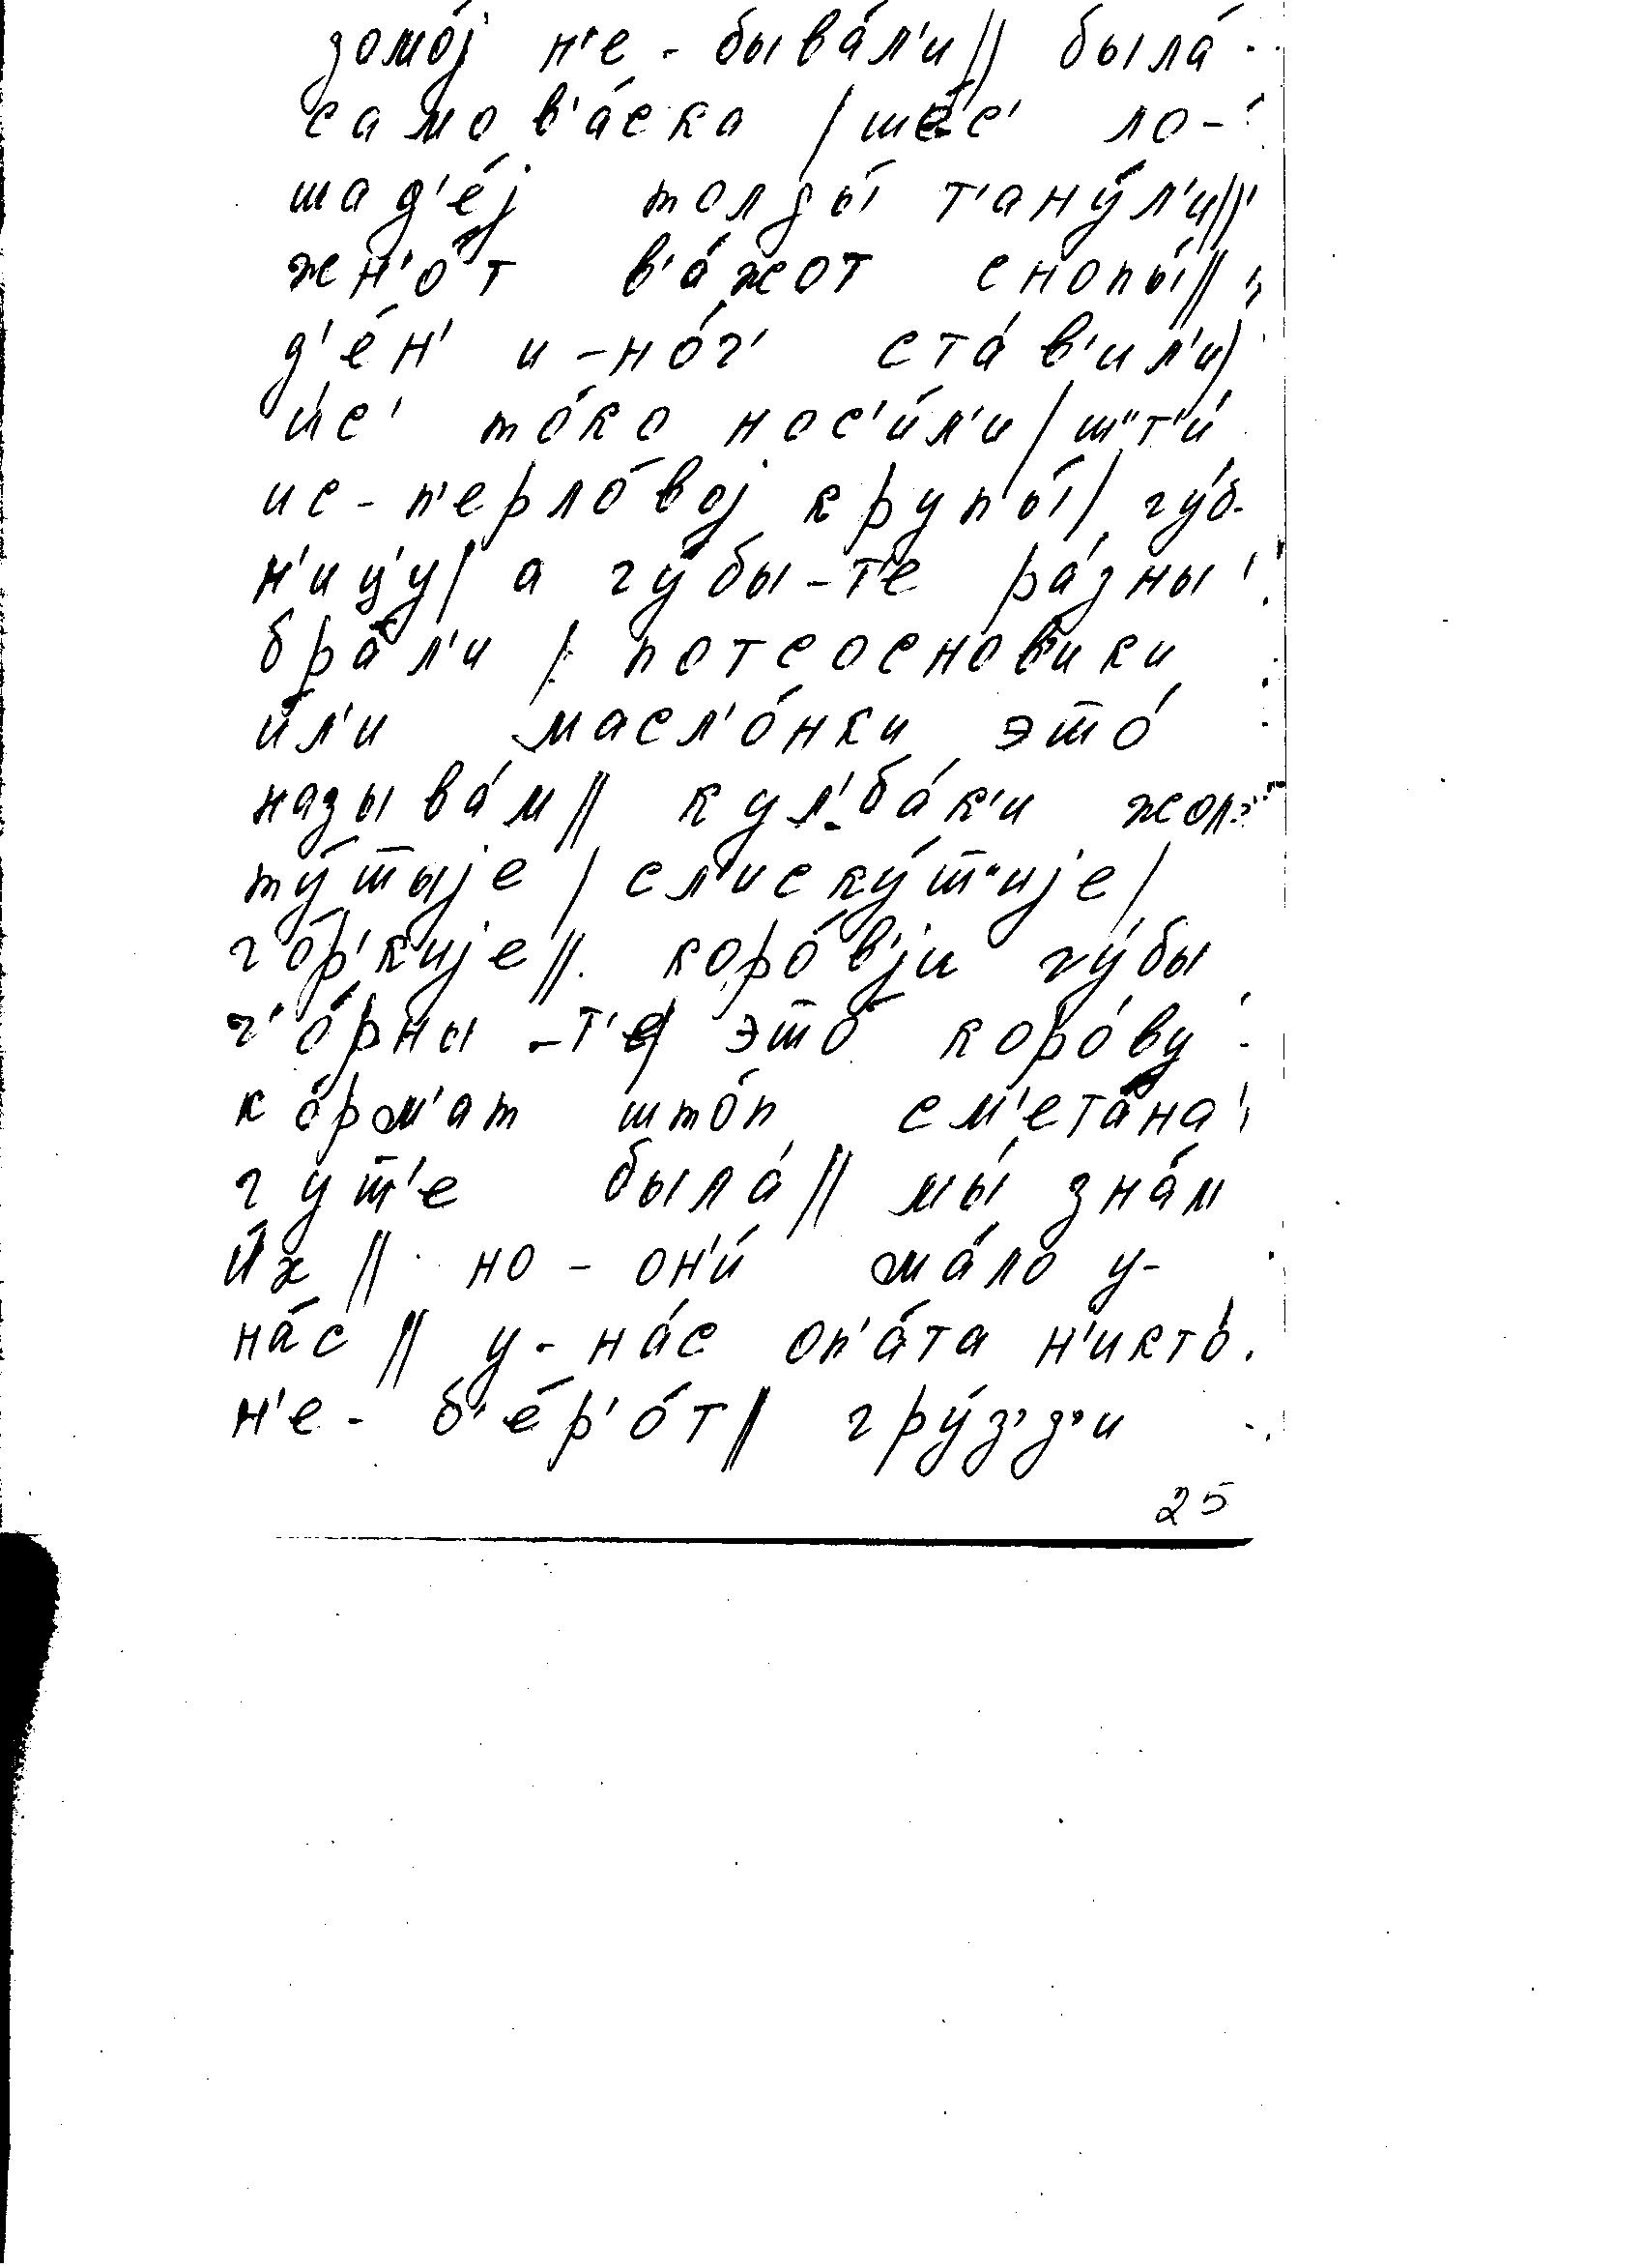 домо́j н'е-быва́л'и// была́
самов'а́ска /ше́с' ло-
шад'е́j толды́ т'ану́л'и//
жн'о́т в'а́жот снопы́//
д'е́н' и-но́ч' ста́в'ил'и/
и́с' то́ко нос'и́л'и/ ш''т'и́
ис-п'ерло́воj крупы́/ гу́б-
н'ицу/ а гу́бы-т'е ра́зны
бра́л'и / потсоснов'ики
и́л'и масл'о́нки э́то́
называ́м// кул'ба́к'и жол-
ту́шыjе / сл'иску́ш'иjе/
го́р'киjе// коро́в'jи гу́бы
ч'о́рны-т'е/ это́ коро́ву
ко́рм'ат што́п см'ета́на
гуш'е была́// мы́ зна́м
и́х // но-он'и́ ма́ло у-
на́с // у-на́с оп'а́та н'икто́
н'е-б'е́р'о́т// гру́з'д'и
25